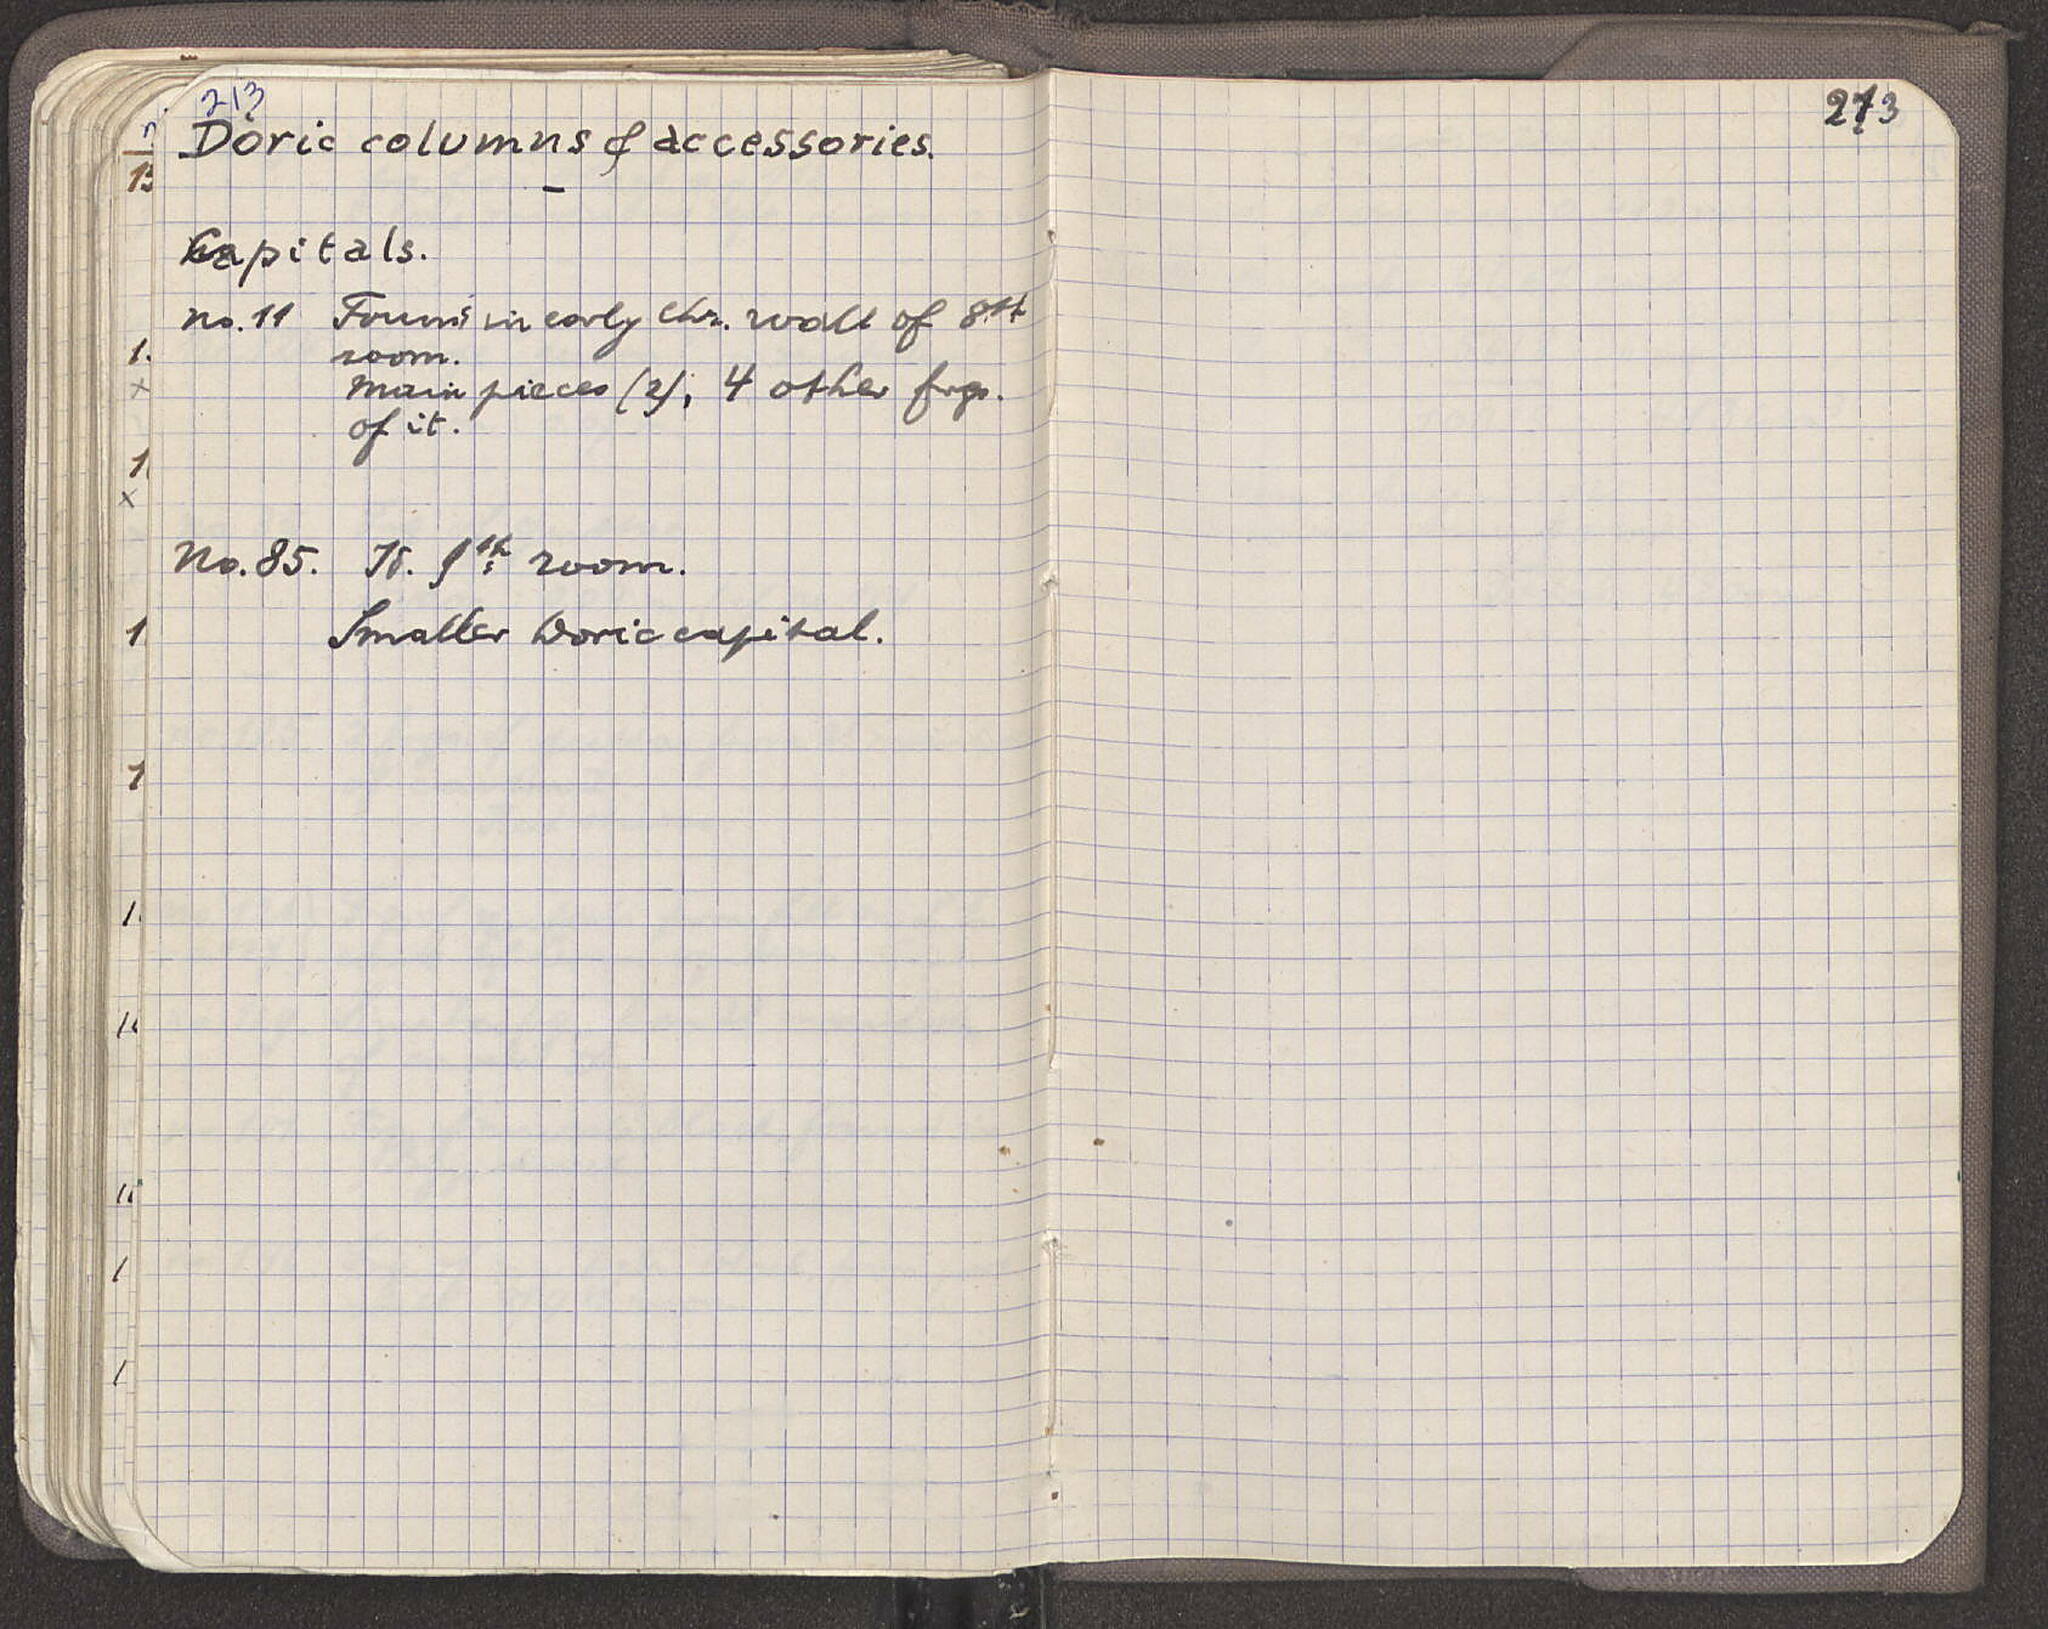 213
Doric columns & accessories.
Capitals.
no. 11 Found in early Chr. wall of 8th
room.
Main pieces (2), 4 other frgs.
of it.
No. 85. 9th room.
Smaller Doric capital.
213